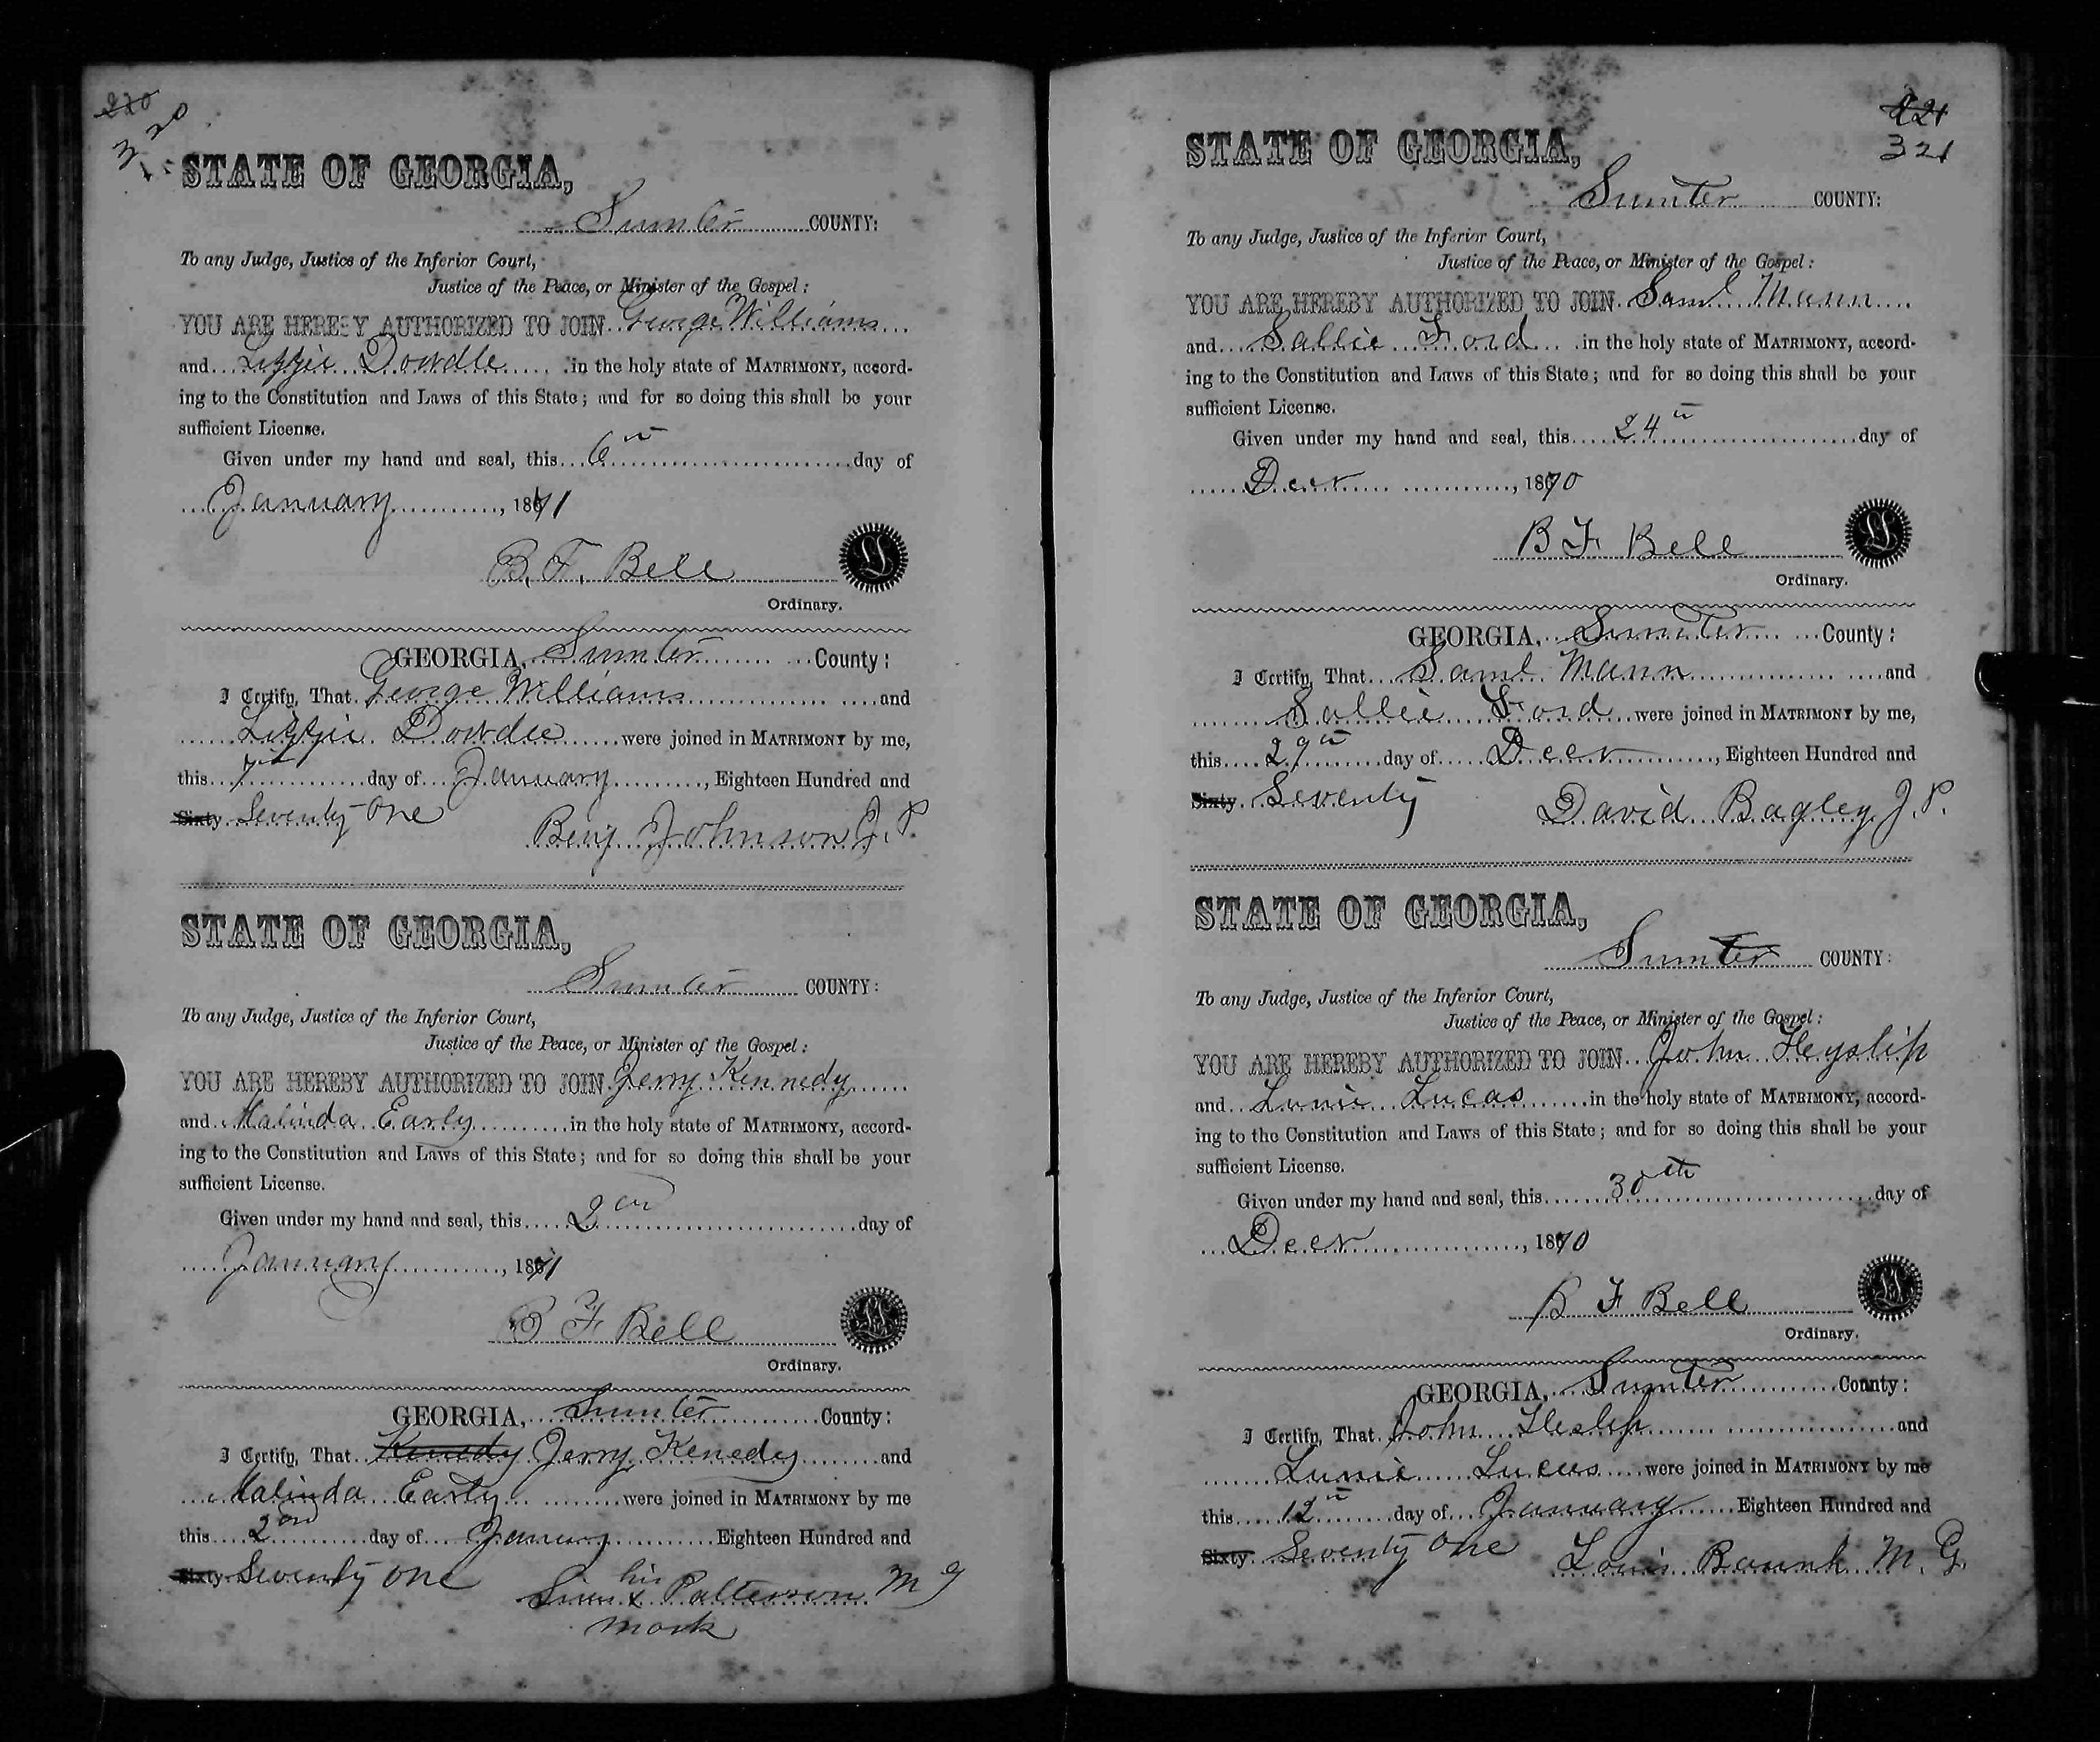 220
320
STATE OF GEORGIA,
Sumter COUNTY:
To any Judge, Justice of the Inferior Court,
Justice of the Peace, or Minister of the Gospel:
YOU ARE HEREBY AUTHORIZED TO JOIN George Williams
and Lizzie Dowdle in the holy state of MATRIMONY, accord-
ing to the Constitution and Laws of this State; and for so doing this shall be your
sufficient License.
Given under my hand and seal, this 6th day of
January, 1871
B. F. Bell
Ordinary.
GEORGIA, Sumter County:
I Certify, That George Williams and
Lizzie Dowdle were joined in MATRIMONY by me,
this 7th day of January, Eighteen Hundred and
Sixty Seventy One
Benj Johnson J. P.
STATE OF GEORGIA,
Sumter COUNTY:
To any Judge, Justice of the Inferior Court,
Justice of the Peace, or Minister of the Gospel:
YOU ARE HEREBY AUTHORIZED TO JOIN Jerry Kennedy
and Malinda Early in the holy state of MATRIMONY, accord-
ing to the Constitution and Laws of this State; and for so doing this shall be your
sufficient License.
Given under my hand and seal, this 2nd day of
January, 1871
B F Bell
Ordinary.
GEORGIA, Sumter County:
I Certify, That Kenedy Jerry Kenedy and
Malinda Early were joined in MATRIMONY by me
this 2nd day of January Eighteen Hundred and
Sixty Seventy One
his
x Patterson M G
mark
221
321
STATE OF GEORGIA,
Sumter COUNTY:
To any Judge, Justice of the Inferior Court,
Justice of the Peace, or Minister of the Gospel:
YOU ARE HEREBY AUTHORIZED TO JOIN Saml Mann
and Sallie Ford in the holy state of MATRIMONY, accord-
ing to the Constitution and Laws of this State; and for so doing this shall be your
sufficient License.
Given under my hand and seal, this 24th day of
Decr, 1870
B F Bell
Ordinary.
GEORGIA, Sumter County:
I Certify, That Saml Mann and
Sallie Ford were joined in MATRIMONY by me,
this 29th day of Decr, Eighteen Hundred and
Sixty Seventy
David Bagley J. P.
STATE OF GEORGIA,
Sumter COUNTY:
To any Judge, Justice of the Inferior Court,
Justice of the Peace, or Minister of the Gospel:
YOU ARE HEREBY AUTHORIZED TO JOIN John Heyslip
and Lunie Lucas in the holy state of MATRIMONY, accord-
ing to the Constitution and Laws of this State; and for so doing this shall be your
sufficient License.
Given under my hand and seal, this 30th day of
Decr, 1870
B F Bell
Ordinary.
GEORGIA, Sumter County:
I Certify, That John Heslip and
Lunie Lucas were joined in MATRIMONY by me
this 12th day of January Eighteen Hundred and
Sixty Seventy One
Louis M. G.